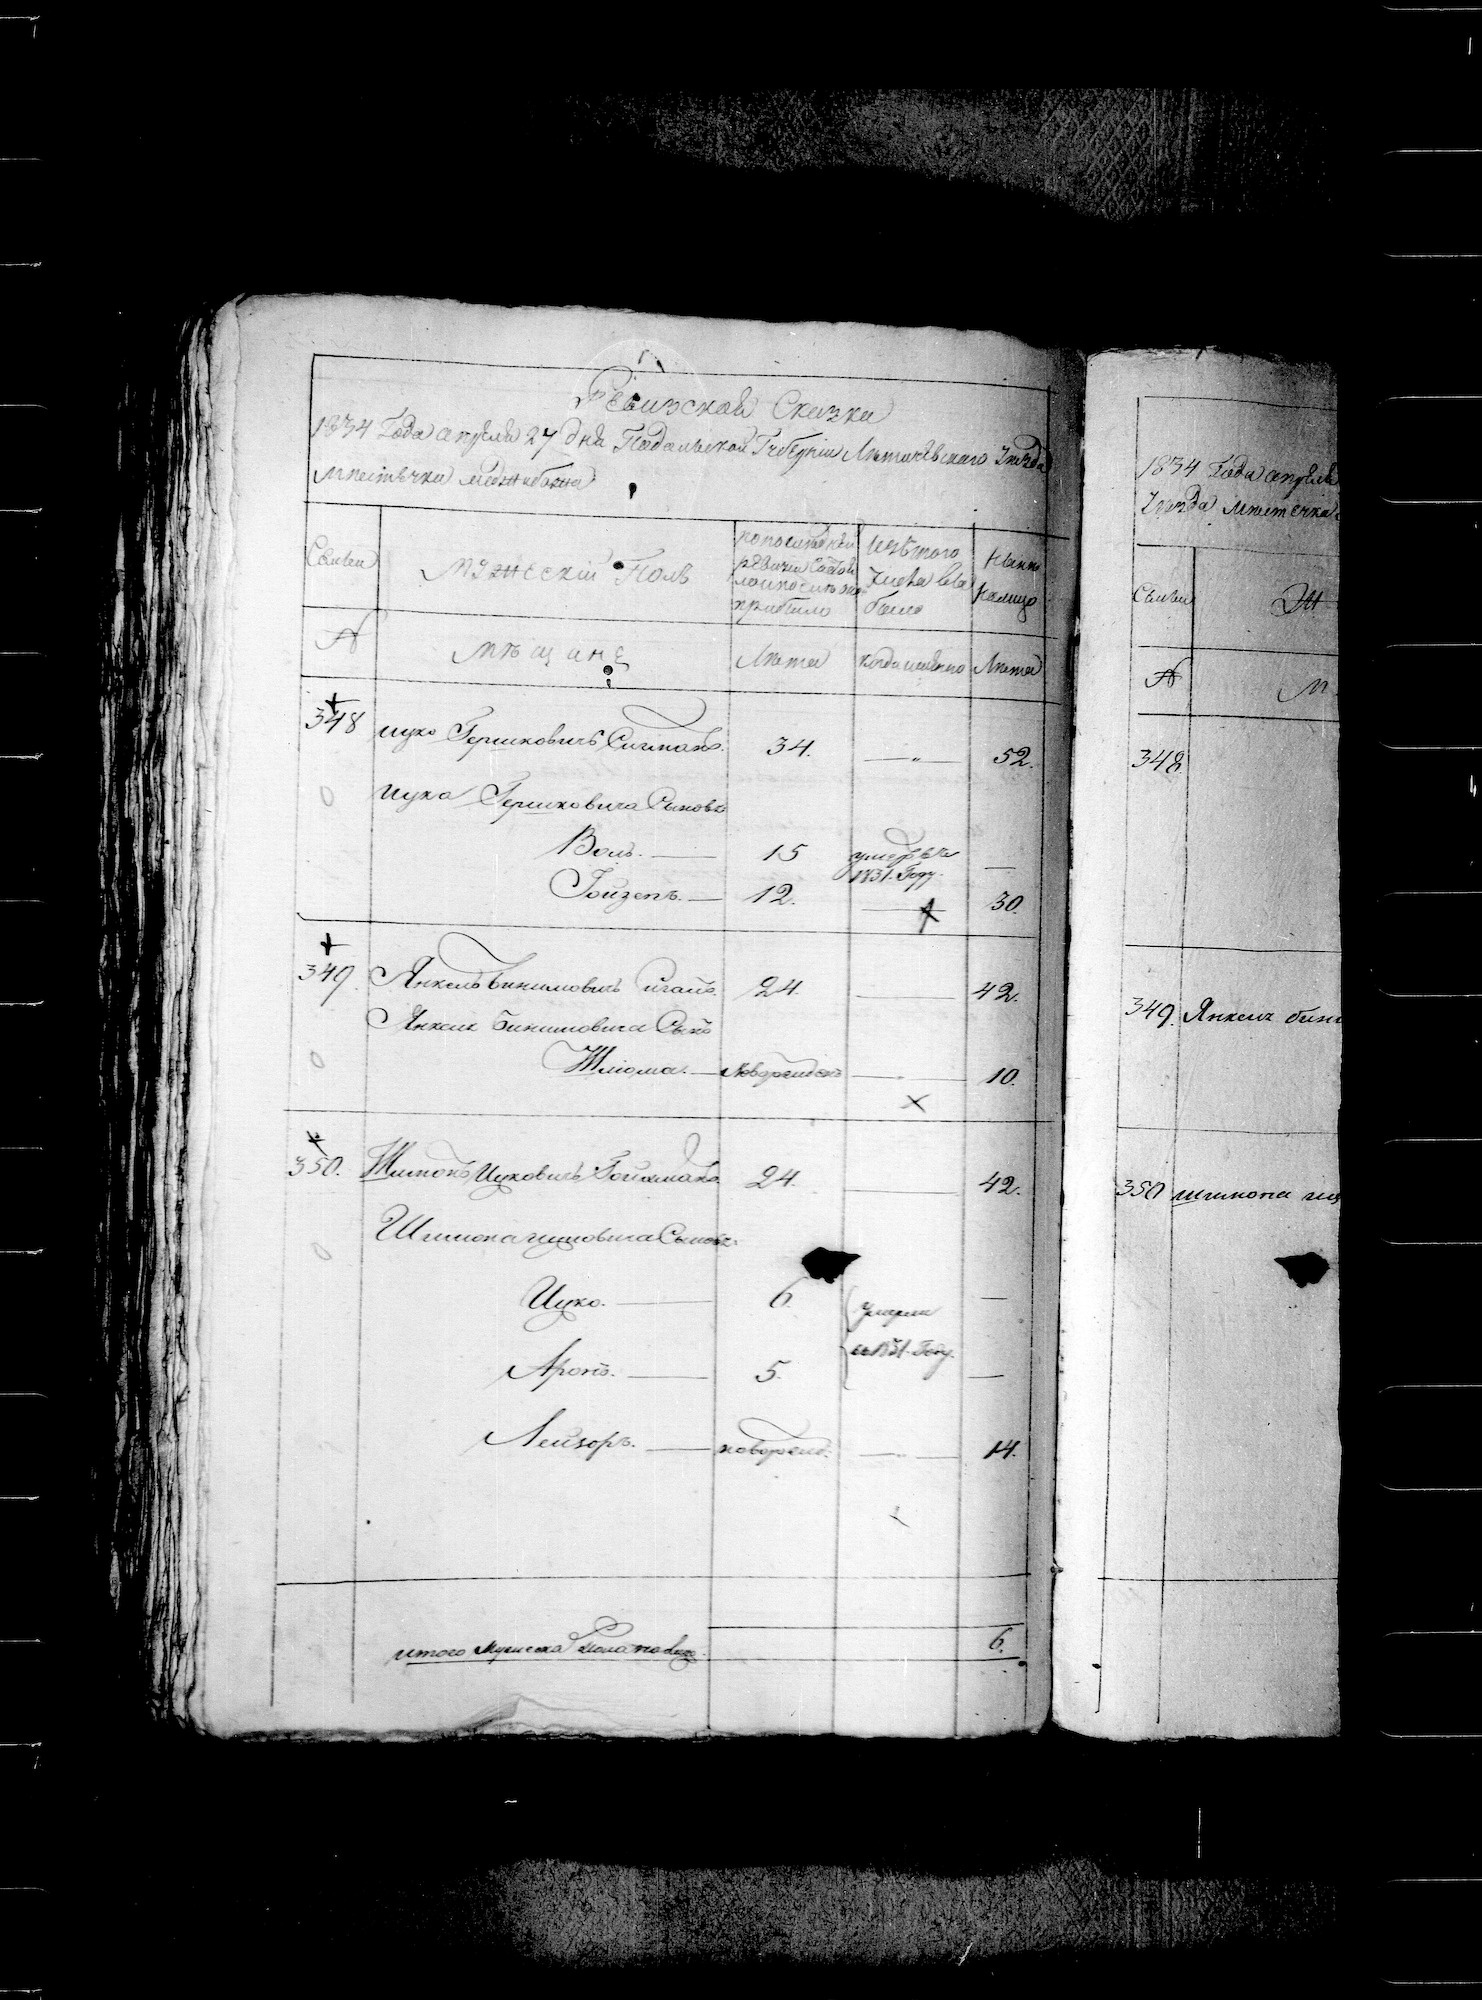 Ревизская Сказка
1834 Года апреля 27 дня Подольской Губернии Летичевского Уезда
местечка Меджибожа
Семьи
мужескій Полъ
по последней
ревизіи состо
яло и после оной
прибыло
Изъ того
числа выбыло
Ныне
на лицо
№
мещане
Лета
когда именно
Лета
348 ицко Гершковичъ 34. — „ — 52.
ицка Гершковича Сыновья
Воль. — 15 умеръ въ 1831. Году. —
Гойзепъ. — 12. — 30.
349. Янкель Бинимовичъ 24. — 42.
Янкеля Бинимовича Сынъ
Шлиома. — новорожденъ — 10.
350. Шлимонъ Ицковичъ Гойхманъ 24. — 42.
Шлимона ицковича Сыновья
Ицко. — 6. умерли —
въ 1831. Году.
Аронъ. — 5. —
Лейзоръ. — новорожд. — „ — 14.
итого Мужеска Пола на лицо. 6.
1834 Года апреля
Уезда местечка
Семьи
№
348
349. Янкеля бини
350 шлимона ицк